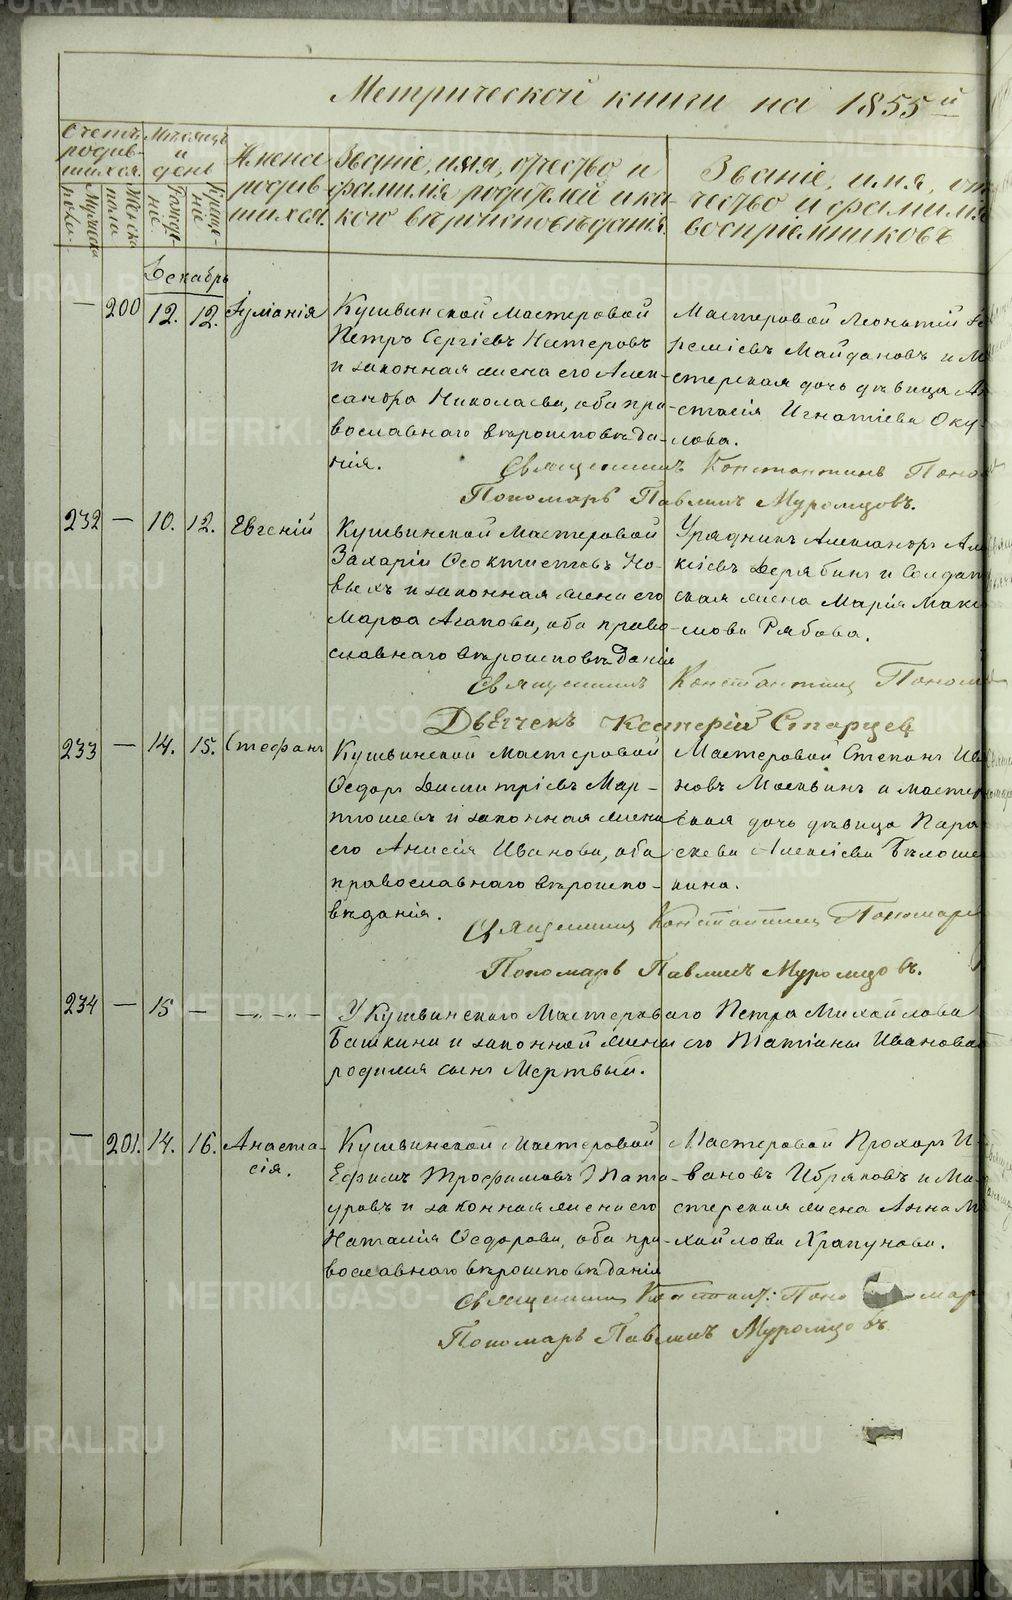 Метрической книги на 1855й
Счетъ родив-шихся.
Мужеска пола.
Женска пола
Мѣсяцъ и день
Рожде-нія.
Креще-нія
Имена родив-шихся.
Званіе, имя, отчество и фамилія родителей и ка-кого вѣроисповѣданія.
Званіе, имя, от-чество и фамилія воспріемниковъ
Декабрь
— 200 12. 12. Іуліанія
Кушвинской мастеровой
Петръ Сергіевъ Нестеровъ
и законная жена его Алек-
сандра Николаева, оба пра-
вославнаго вѣроисповѣда-
нія.
Мастеровой Леонтій
ремѣевъ Майдановъ и М
стерская дочь дѣвица Ан
стасія Игнатіева Оку-
лова.
Священникъ Константинъ Поно
Пономарь Павлинъ Муромцовъ.
232 — 10. 12. Евгеній
Кушвинской мастеровой
Захарій Ѳеоктистовъ Но-
выхъ и законная жена его
Марѳа Агапова, оба право-
славнаго вѣроисповѣданія
Урядникъ Александръ Але
ксіевъ Дерябинъ и Солдат
ская жена Марія Макси
мова Рябова.
Священникъ Константинъ Поном
Дьячекъ Ксенерій Старцев
233 — 14. 15. Стефанъ
Кушвинской мастеровой
Ѳедоръ Димитріевъ Мар-
тюшевъ и законная жена
его Анисія Иванова, оба
православнаго вѣроиспо-
вѣданія.
Мастеровой Степанъ Ива
новъ Москвинъ и мастер
ская дочь дѣвица Пара
скева Алексіева Бѣлоше
кина.
Священникъ Константинъ Пономар
Пономарь Павлинъ Муромцовъ.
234 — 15 — —„—„—
У Кушвинскаго Мастероваго Петра Михайлова
Башкина и законной жены его Татіаны Ивановой
родился сынъ Мертвый.
— 201. 14. 16. Анаста-
сія.
Кушвинской Мастеровой
Ефимъ Трофимовъ Упата-
уровъ и законная жена его
Наталія Ѳедорова, оба пра-
вославнаго вѣроисповѣданія
Мастеровой Прохоръ И-
вановъ Ибряковъ и Ма
стерская жена Анна Ми
хайлова Храпунова.
Священникъ Констант: Поно мар
Пономарь Павлинъ Муромцовъ
METRIKI.GASO-URAL.RU